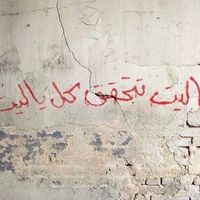 اليت تتحقق كل ياليت